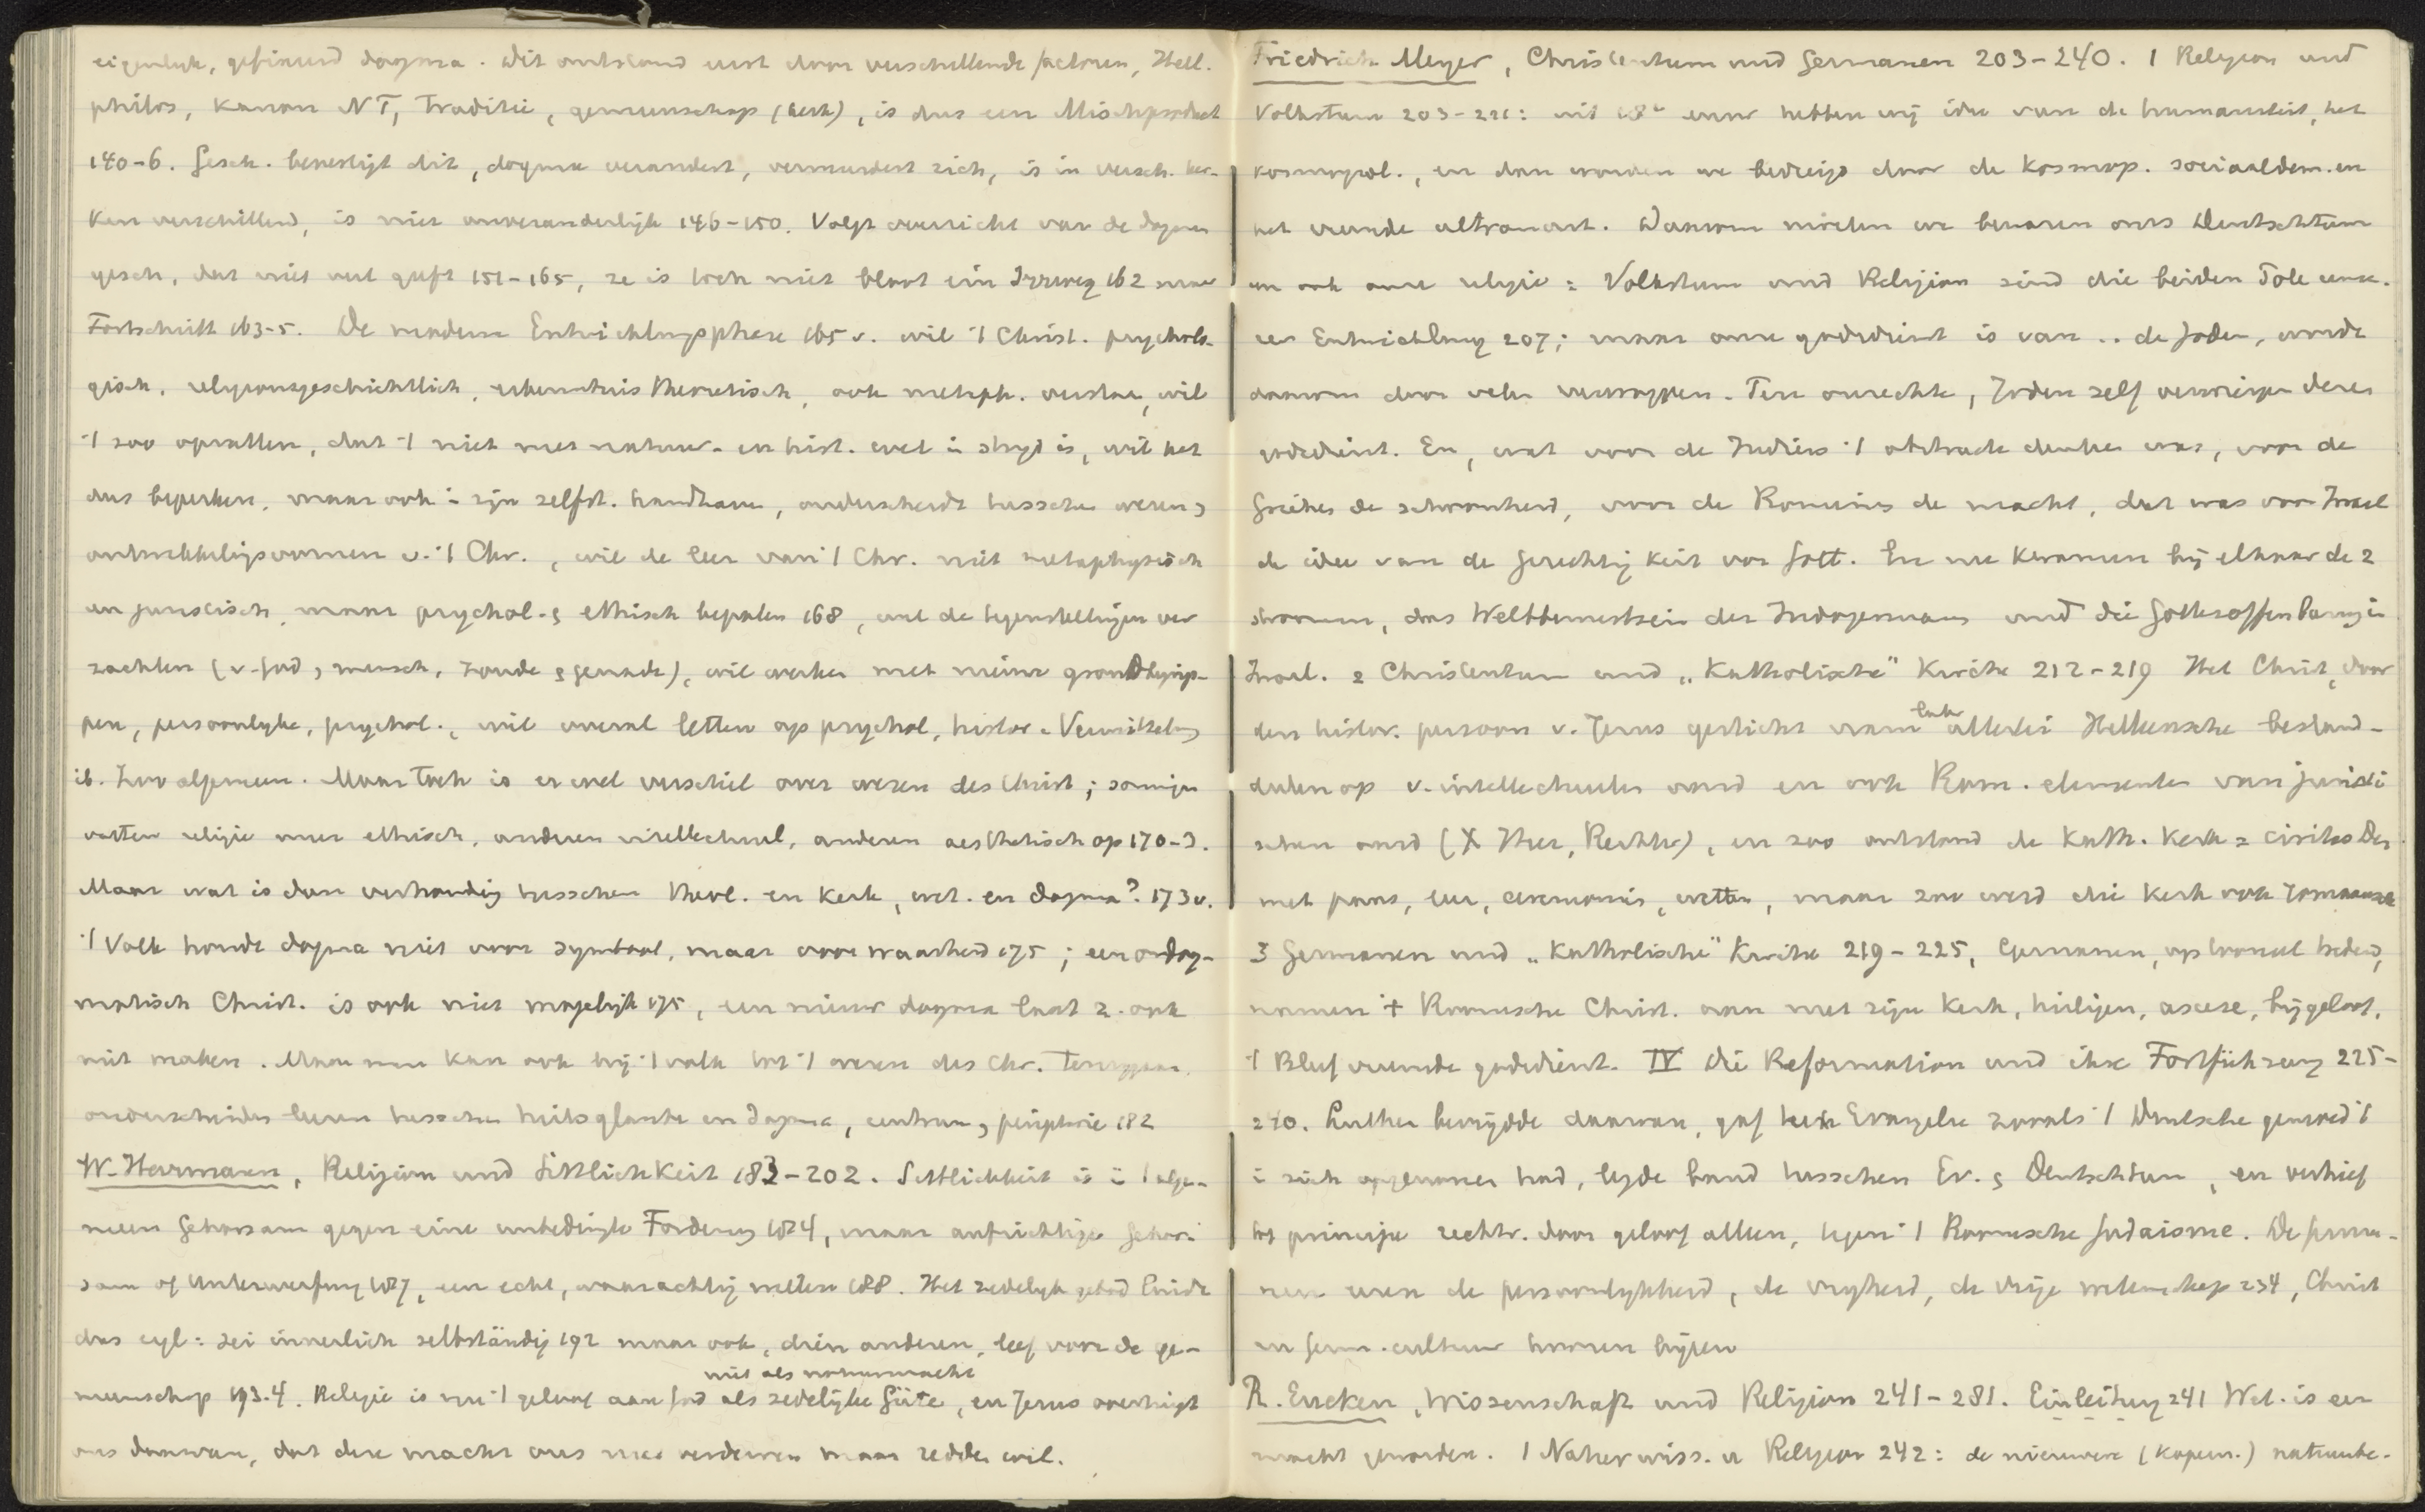 eigenlijk, gefixeerd dogma. Dit ontstond eerst door verschillende factoren, Hell.
philos, Kanon NT, Traditie, gemeenschap (kerk), is dus een Mischprodukt
140-6. Gesch. bevestigt dit, dogma verandert, vermeerdert zich, is in versch. ker-
ken verschillend, is niet onveranderlijk 146-150. Volgt overzicht van de dogmen
gesch, dat niet veel geeft 151-165, ze is toch niet bloot ein Irrweg 162 maar
Fortschritt 163-5. De moderne Entwicklungsphase 165 v. wil 't Christ. psycholo-
gisch, religionsgeschichtlich, erkenntnistheoretisch, ook metaph. verstaan, wil
't zoo opvatten, dat 't niet met natuur- en hist. wet in strijd is, wil het
dus beperken, maar ook in zijn zelfst. handhaven, onderscheidt tusschen wezen en
ontwikkelingsvormen v. 't Chr., wil de leer van 't Chr. niet metaphysisch
en juridisch, maar psychol. & ethisch bepalen 168, wil de tegenstellingen ver
zachten (v. God, mensch, zonde & genade), wil werken met nieuwe grondbegrip-
pen, persoonlijke, psychol., wil overal letten op psychol, histor. Vermittelung
ib. Zoo algemeen. Maar toch is er veel verschil over wezen des Christ; sommigen
vatten religie meer ethisch, anderen intellectueel, anderen aesthetisch op 170-3.
Maar wat is dan verhouding tusschen theol. en kerk, wet. en dogma? 173 v.
't Volk houdt dogma niet voor symbool, maar voor waarheid 175; een ondog-
matisch Christ. is ook niet mogelijk 175, een nieuw dogma laat z. ook
niet maken. Maar men kan ook bij 't volk tot 't wezen des Chr.
onderscheiden leeren tusschen heilsglaube en dogma, centrum en peripherie 182
W. Herrmann, Religion und Sittlichkeit 183-202. Sittlichkeit is in 't alge-
meen Gehorsam gegen eine unbedingte Forderung 184, maar aufrichtiger Gehor-
sam of Unterwerfung 187, een echt, waarachtig willen 188. Het zedelijk gebod luidt
dus egl: sei innerlich selbständig 192 maar ook, dien anderen, leef voor de ge-
niet als natuurmacht
meenschap 193-4. Religie is nu 't geloof aan God als zedelijke Güte, en Jezus overtuigt
ons daarvan, dat deze macht ons niet verderven maar redden wil.
Friedrich Meyer, Christentum und Germanen 203-240. 1 Religion und
Volkstum 203-211: uit 18e eeuw hebben wij idee van de humaniteit, het
kosmopol., en dan worden we bedreigd door de kosmop. sociaaldem. en
het vreemde ultramont. Daarom moeten we bewaren ons Deutschtum
en ook onze religie: Volkstum und Religion sind die beiden Pole unse-
rer Entwicklung 207; maar onze godsdienst is van .. de Joden, wordt
daarom door velen verworpen. Ten onrechte, Joden zelf verwierpen dezen
godsdienst. En, wat voor de Indiërs 't abstracte denken was, voor de
Grieken de schoonheid, voor de Romeinen de macht, dat was voor Israel
de idee van de Gerechtigkeit vor Gott. En nu kwamen bij elkaar de 2
stroomen, das Weltbewustsein der Indogermanen und die Gottesoffenbarung in
Israel. 2 Christentum und "Katholische" Kirche 212-219 Het Christ, door
den histor. persoon v. Jezus gesticht nam later allerlei Helleensche bestand-
deelen op v. intellectueelen aard en ook Rom. elementen van juridi
schen aard (X Heer, Rechter), en zoo ontstond de Kath. Kerk = civitas Dei
met paus, leer, ceremonies, wetten, maar zoo werd die kerk ook
3 Germanen und "Katholische" Kirche 219-225, Germanen, op tooneel tredend,
namen 't Roomsche Christ. aan met zijn kerk, heiligen, ascese, bijgeloof,
't Bleef vreemde godsdienst. IV Die Reformation und ihre Fortführung 225-
240. Luther bevrijdde daarvan, gaf het Evangelie zooals 't Duitsche gemoed 't
in zich opgenomen had, legde band tusschen Ev. & Deutschtum, en verhief
tot principe rechtv. door geloof alleen, tegen 't Roomsche Judaisme. De Germa-
nen eeren de persoonlijkheid, de vrijheid, de vrije wetenschap 234, Christ
en Germ. cultuur hooren bijeen
R. Eucken, Wissenschaft und Religion 241-281. Einleitung 241 Wet. is een
macht geworden. 1 Naturwiss. u Religion 242: de nieuwere (Kopern.) natuurbe-